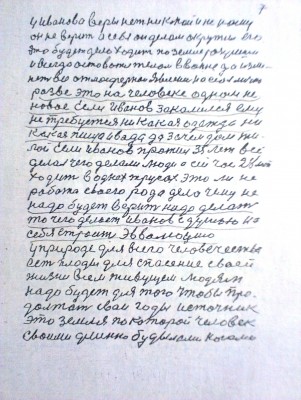 7
у Иванова веры нет никакой и не кому
он не верит а себя он делом окрутил его
это будет дело ходит по земле
и всегда остовотся телом в
нет во атмосфере
разве это на человеке одном не
новое если Иванов закалился ему
не требуется никакая одежда ни
какая пища и вада да зачем дом жи
лой если Иванов прожил 35 лет всё
делал чего делали люди а сейчас 2
ходит в одних трусах это ли не
работа своего рода дела чему не
надо будет верить надо делать
то чего делает Иванов с душою на
себя строит Эвволюцию
у природе для всего человечества
ест плоды для спасение своей
жизни всем живущем людям
надо будет для того чтобы про
должат сваи годы источник
это земля по которой человек
своими длинно будылами ногами